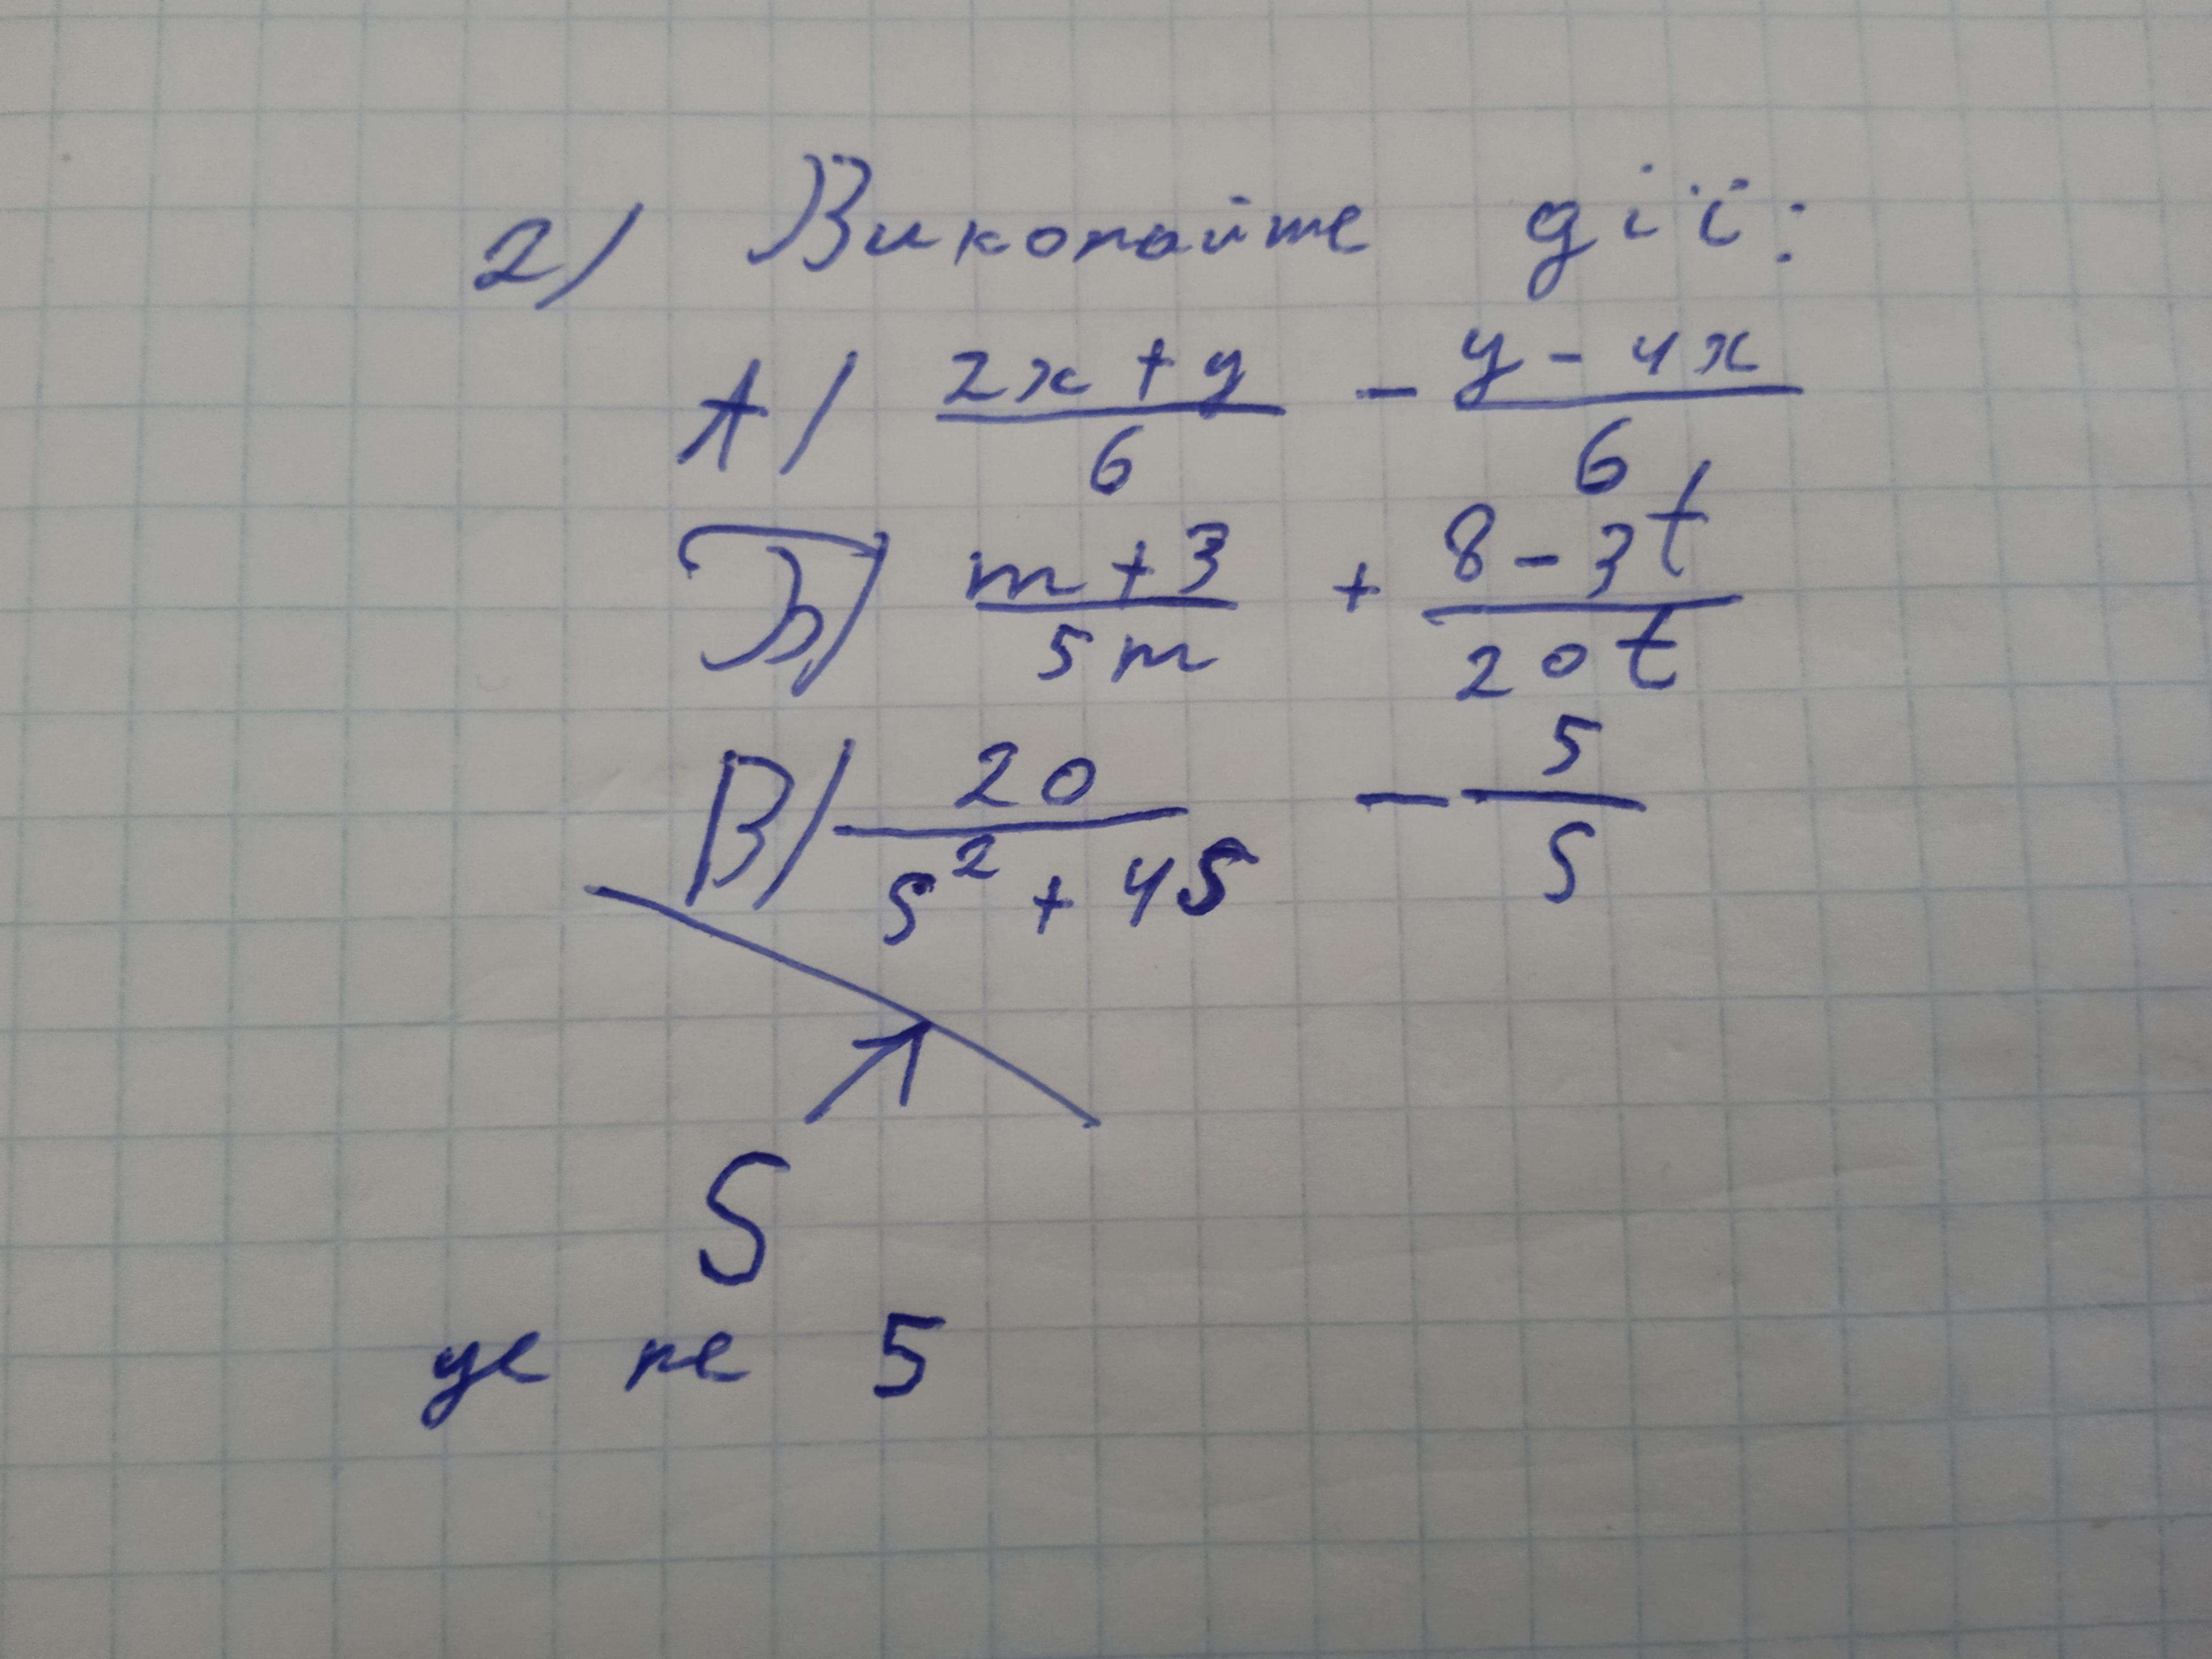 2) Виконайте дії:
А) (2x + y)/6 - (y - 4x)/6
Б) (m + 3)/(5m) + (8 - 3t)/(20t)
В) 20/(S² + 4S) - 5/S
S
це не 5